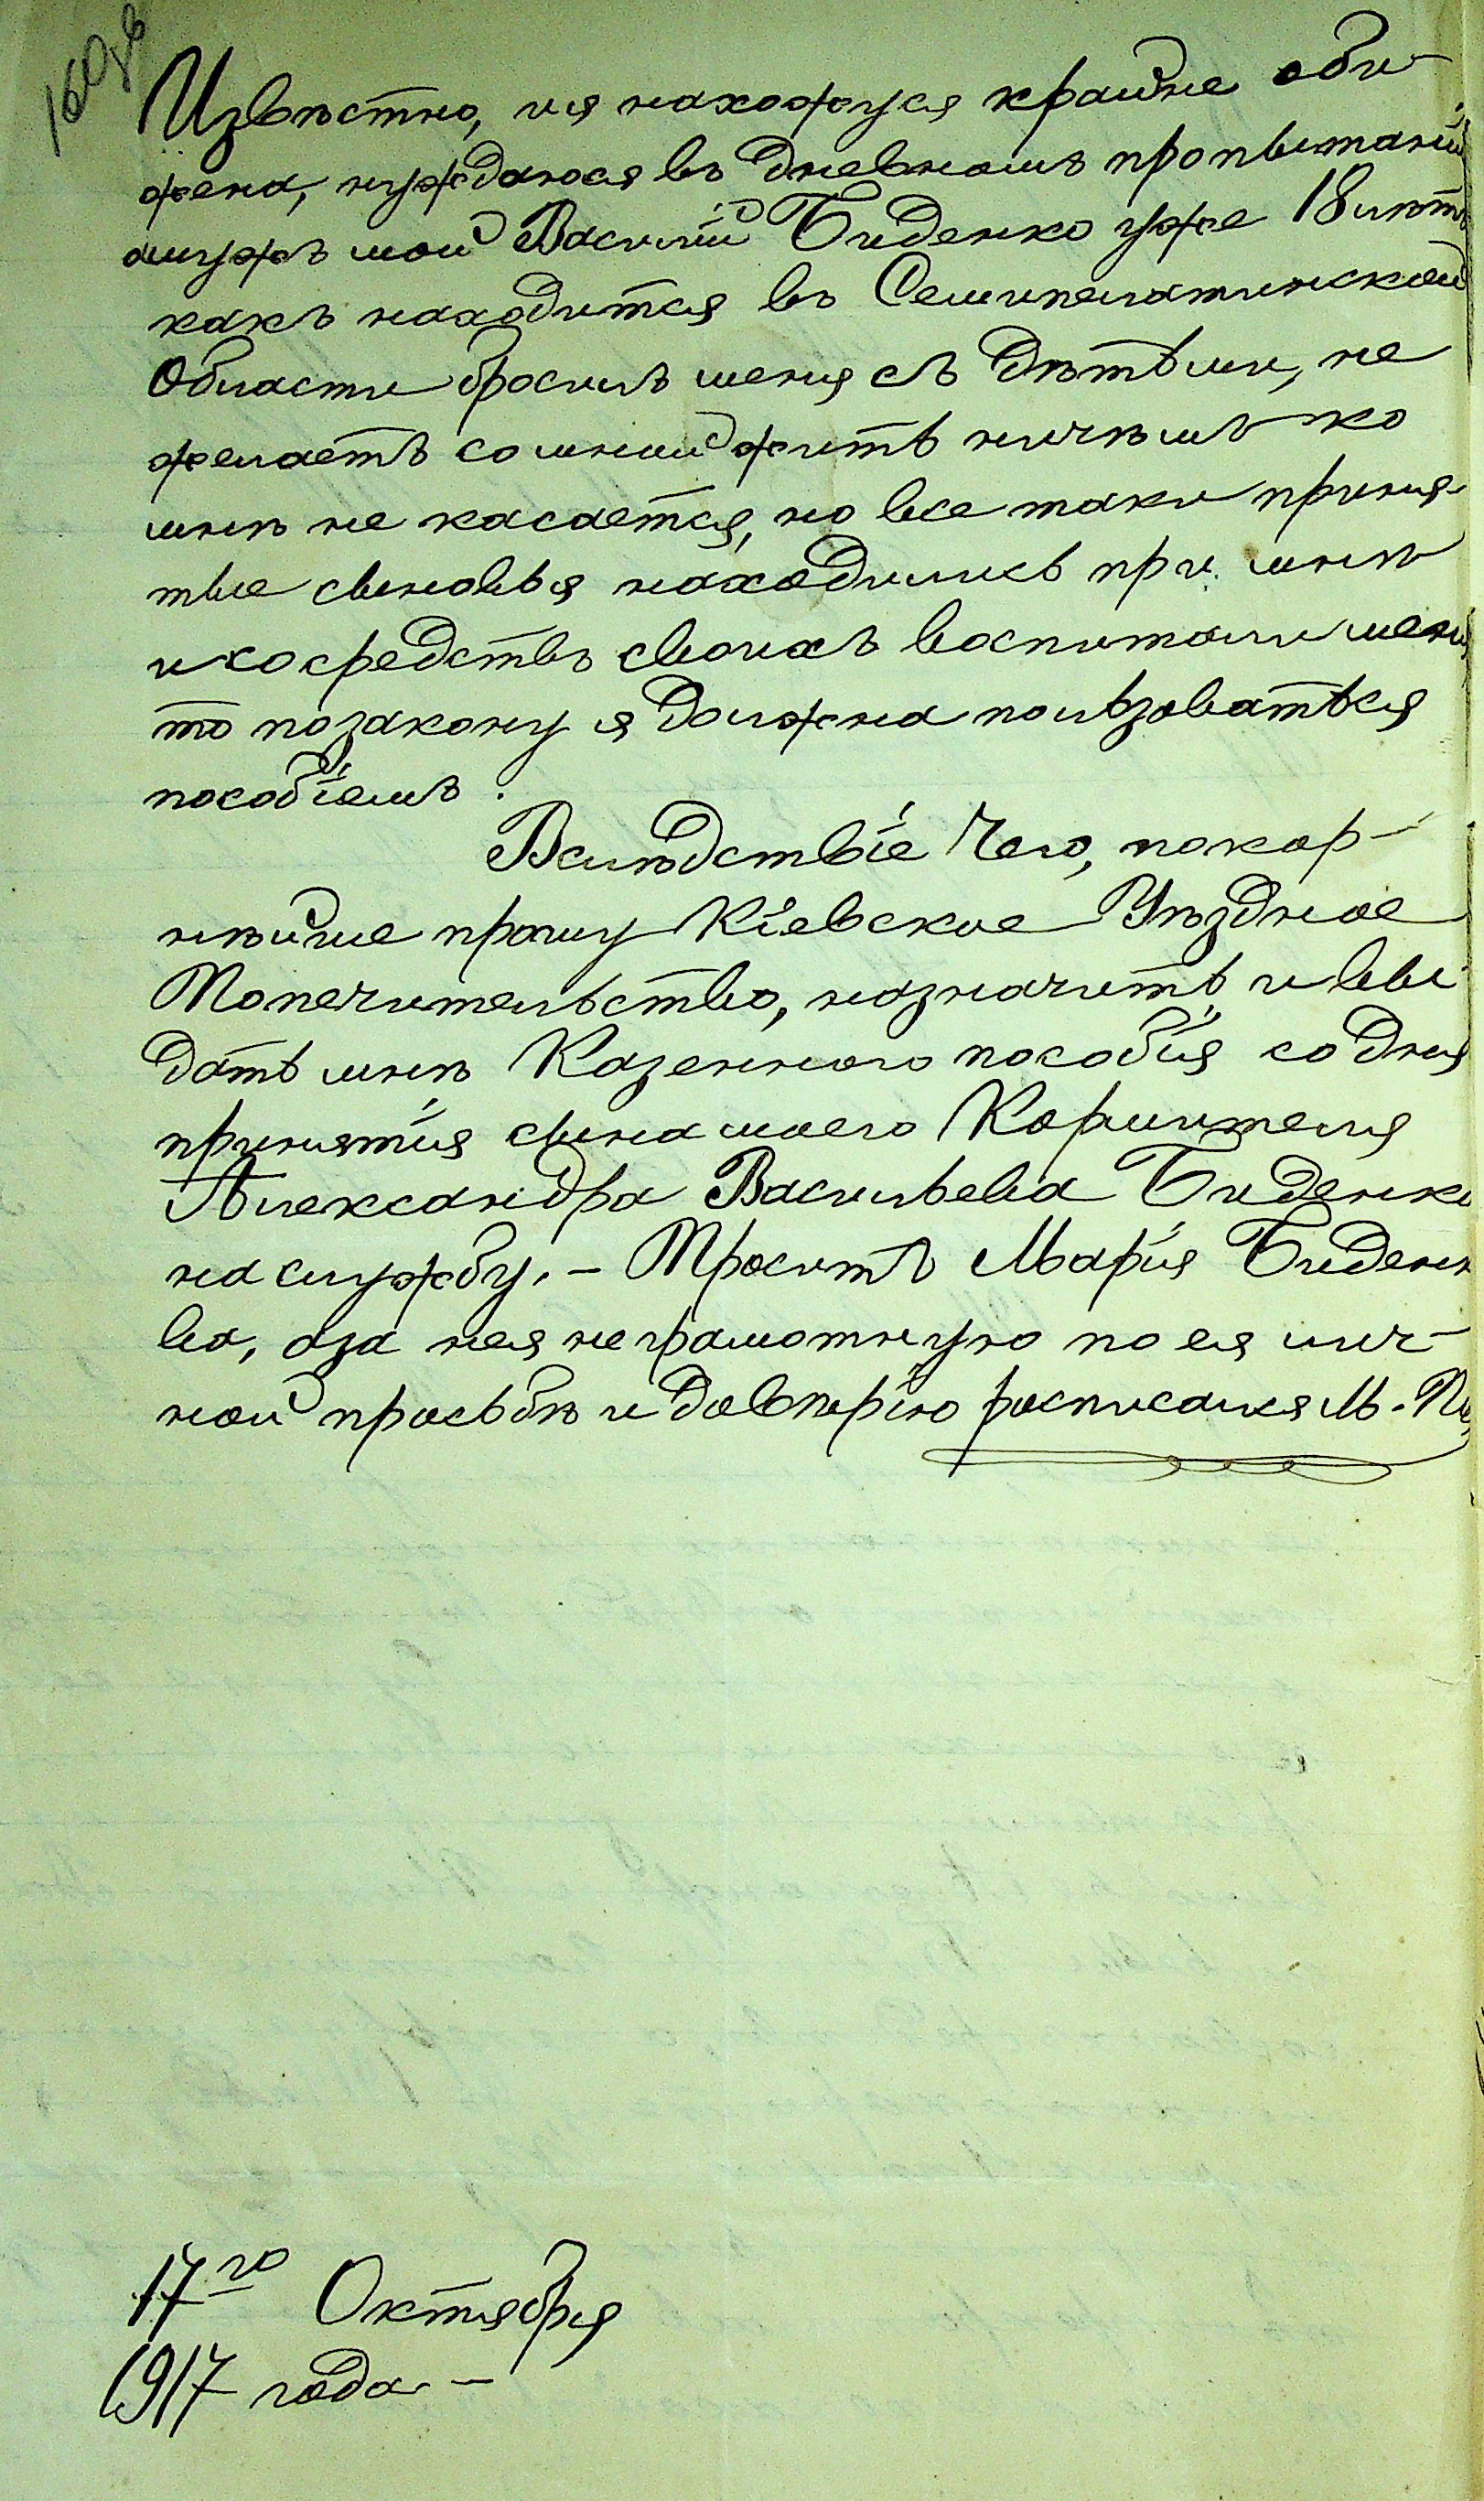 160 об
Извѣстно, ия нахожуся крайне оби-
жена, нуждаюся въ дневномъ пропытаніи
амужъ мой Василій Биденко уже 18 лѣтъ
какъ находится въ Семипелатинской
Области бросилъ меня съ дѣтьми, не
желаетъ сомной жить ничѣмъ ко
мнѣ не касается, но все таки приня-
тые сыновья находились при мнѣ
и со средствъ своихъ воспитали меня,
то позакону я должна пользоваться
пособіемъ.
Вслѣдствіе Чего, покор-
нѣйше прошу Кіевское Уѣздное
Попечительство, назначить и вы
дать мнѣ Казенного пособія со дня
принятія сына моего Кормителя
Александра Васильева Биденко
на службу. - Просить Марія Биденк
ва, аза нея неграмотную по ея лич-
ной прозьбѣ и довѣрію росписался М.
17го Октября
1917 года -